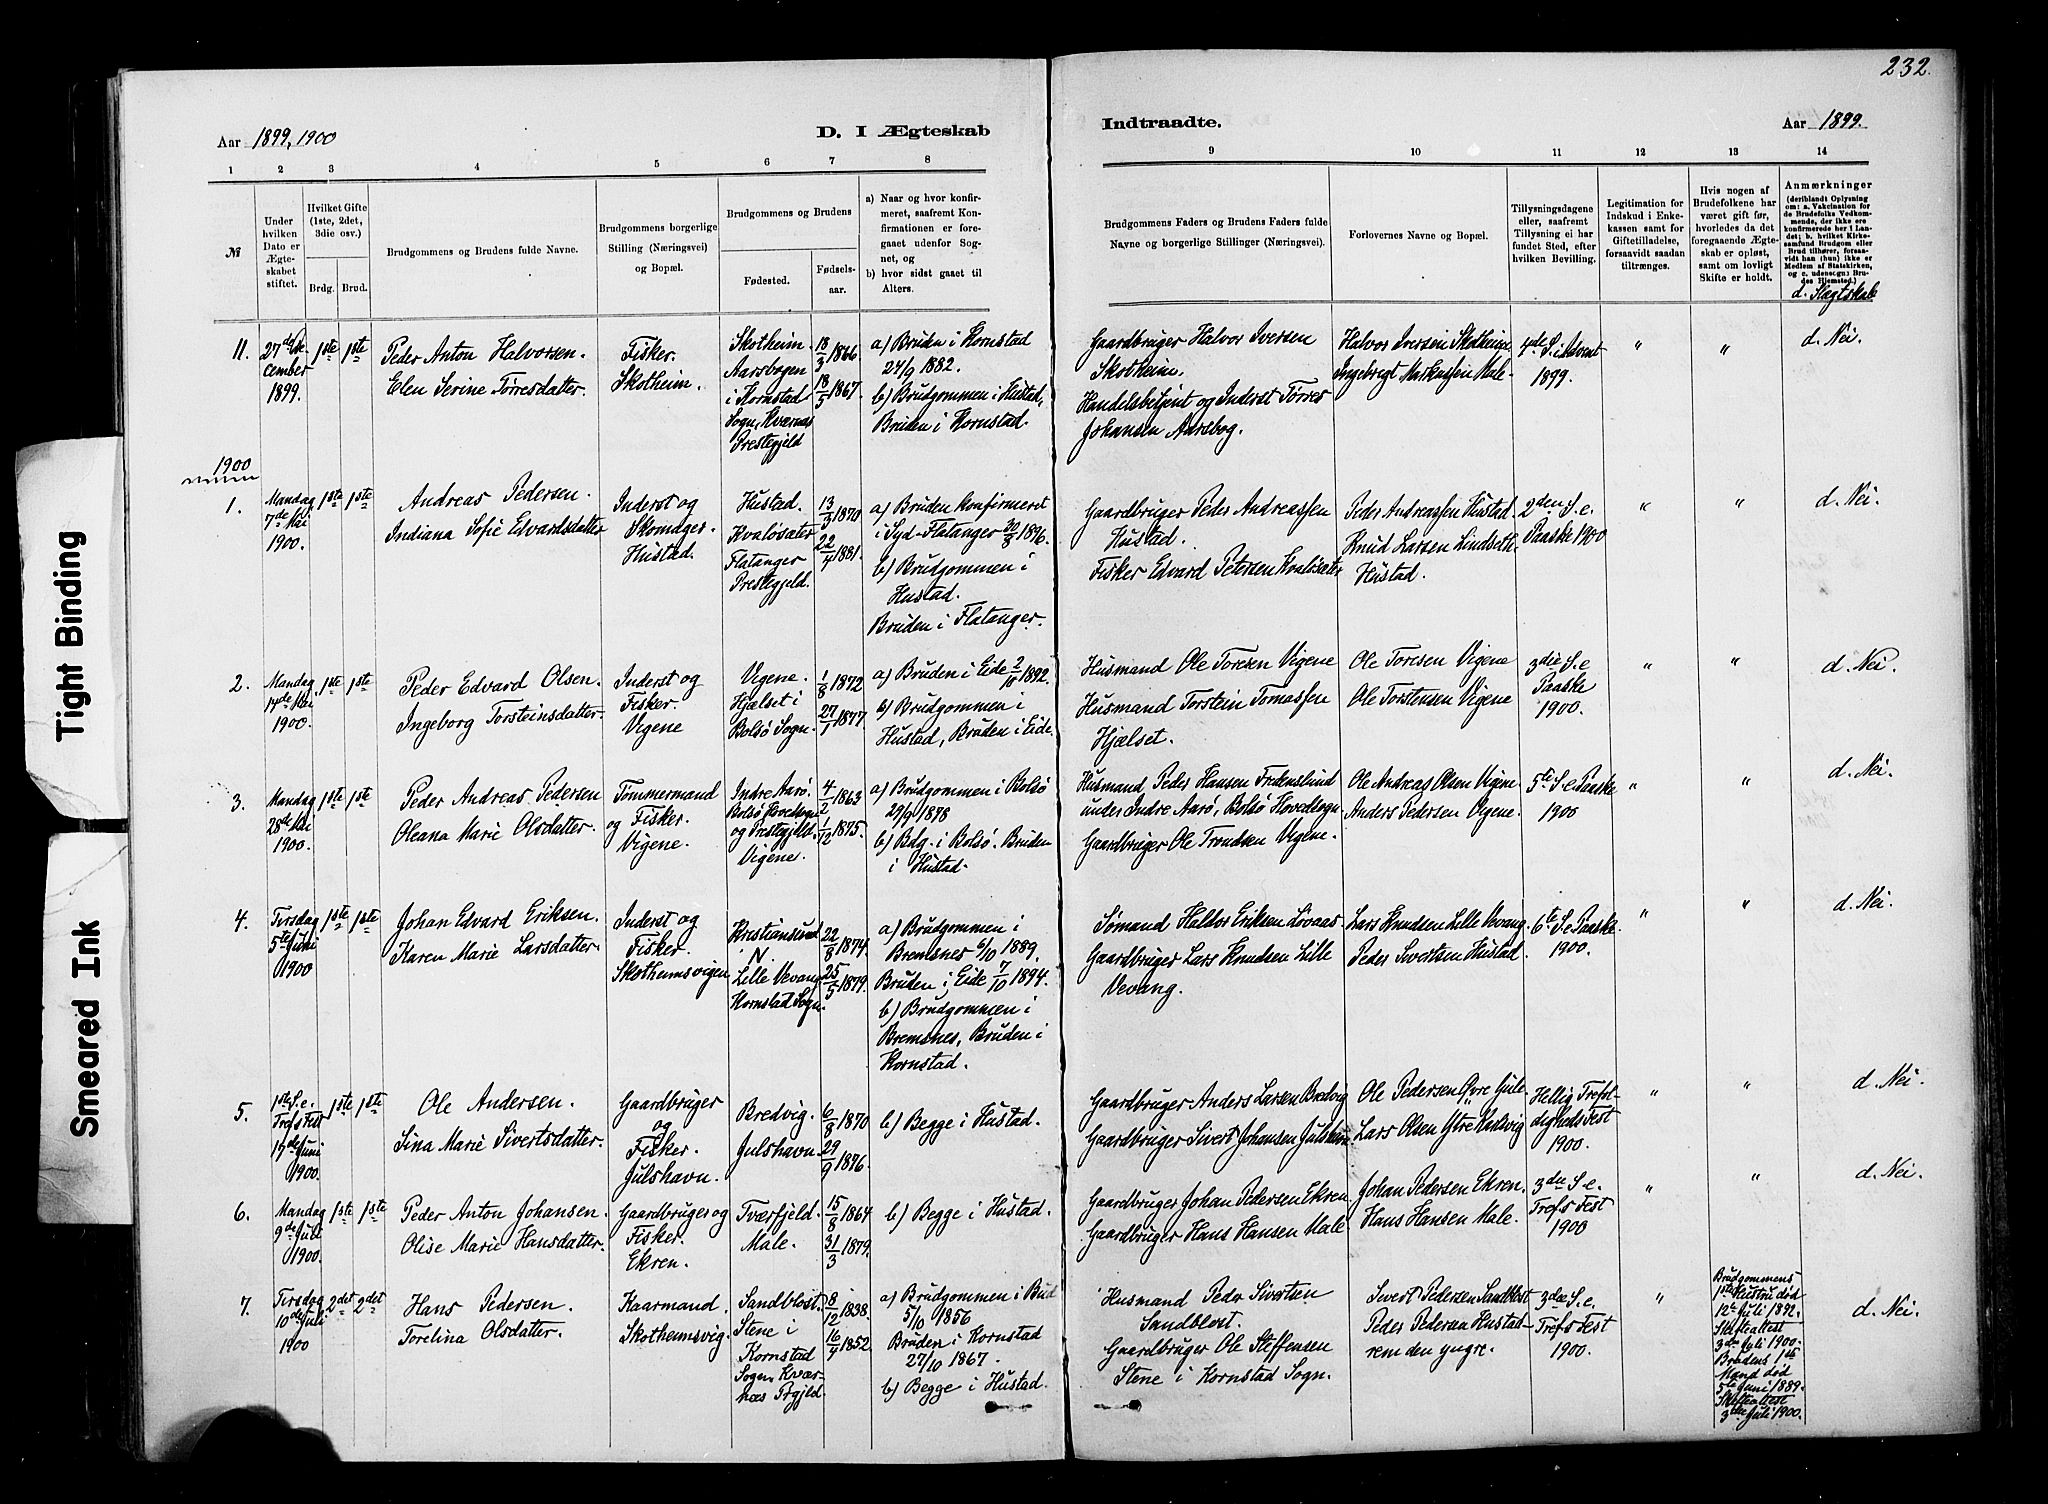 232.
Aar 1899, 1900
D. I Ægteskab
Indtraadte.
Aar 1899.
1 2 3 4 5 6 7 8
9 10 11 12 13 14
№
Under hvilken Dato er Ægteskabet stiftet.
Hvilket Gifte (1ste, 2det, 3die osv.)
Brdg. Brud.
Brudgommens og Brudens fulde Navne.
Brudgommens borgerlige Stilling (Næringsvei) og Bopæl.
Brudgommens og Brudens
Fødested.
Fødselsaar.
a) Naar og hvor konfirmeret, saafremt Konfirmationen er foregaaet udenfor Sognet, og
b) hvor sidst gaaet til Alters.
Brudgommens Faders og Brudens Faders fulde Navne og borgerlige Stillinger (Næringsvei).
Forlovernes Navne og Bopæl.
Tillysningsdagene eller, saafremt Tillysning ei har fundet Sted, efter hvilken Bevilling.
Legitimation for Indskud i Enkekassen samt for Giftetilladelse, forsaavidt saadan tiltrænges.
Hvis nogen af Brudefolkene har været gift før, hvorledes da det foregaaende Ægteskab er opløst, samt om lovligt Skifte er holdt.
Anmærkninger
(deriblandt Oplysning om: a. Vakcination for de Brudefolks Vedkommende, der ikke ere konfirmerede her i Landet; b. hvilket Kirkesamfund Brudgom eller Brud tilhører, forsaavidt han (hun) ikke er Medlem af Statskirken, og c. udensogns Brudes Hjemsted.)
d. Slægtskab
11.
27de De-
cember
1899.
1ste 1ste
Peder Anton Halvorsen.
Elen Serine Tørresdatter.
Fisker.
Skotheim.
Skotheim.
Aarsbogen
i Kornstad
Sogn, Kværnes
Prestegjeld
18/3 1866
18/5 1867.
a) Bruden i Kornstad
24/9 1882.
b) Brudgommen i Hustad,
Bruden i Kornstad.
Gaardbruger Halvor Iversen
Skotheim.
Handelsbetjent og Inderst Tørres
Johansen Aarsbog.
Halvor Iversen Skotheim
Ingebrigt Markussen Male.
4de S. i Advent
1899.
"
"
d. Nei.
1900
1.
Mandag
7de Mai
1900.
1ste 1ste
Andreas Pedersen.
Indiana Sofie Edvardsdatter
Inderst og
Skomager.
Hustad.
Hustad.
Kvaløsæter
Flatanger
Prestegjeld.
13/3 1870
22/4 1881.
a) Bruden konfirmeret
i Syd-Flatanger 30/8 1896.
b) Brudgommen i
Hustad.
Bruden i Flatanger.
Gaardbruger Peder Andreassen
Hustad.
Fisker Edvard Petersen Kvaløsæter
Peder Andreassen Hustad.
Knud Larsen Lindseth
Hustad.
2den S. e.
Paaske 1900
"
"
d. Nei.
2.
Mandag
14de Mai
1900.
1ste 1ste
Peder Edvard Olsen.
Ingeborg Torsteinsdatter.
Inderst og
Fisker.
Vigene
Vigene.
Hjælset i
Bolsø Sogn.
1/8 1872
27/1 1877.
a) Bruden i Eide 2/10 1892.
b) Brudgommen i
Hustad, Bruden i Eide.
Husmand Ole Toresen Vigene
Husmand Torstein Tomassen
Hjælset.
Ole Toresen Vigene
Ole Torstensen Vigene
3die S. e
Paaske
1900.
"
"
d. Nei.
3.
Mandag
28de Mai
1900.
1ste 1ste
Peder Andreas Pedersen
Oleana Marie Olsdatter.
Tømmermand
og Fisker.
Vigene.
Indre Aarø.
Bolsø Hovedsogn
og Prestegjeld.
Vigene.
4/2 1863
1/12 1875.
a) Brudgommen i Bolsø
29/9 1878
b) Bdg. i Bolsø. Bruden
i Hustad.
Husmand Peder Hansen Fredenslund
under Indre Aarø, Bolsø Hovedsogn
Gaardbruger Ole Trondsen Vigene.
Ole Andreas Olsen Vigene
Anders Pedersen Vigene.
5te S. e Paaske
1900
"
"
d. Nei.
4.
Tirsdag
5te Juni
1900
1ste 1ste
Johan Edvard Eriksen.
Karen Marie Larsdatter.
Inderst og
Fisker.
Skotheimsvigen
Kristiansund
N.
Lille Vevang
Kornstad Sogn.
22/8 1874.
25/5 1879.
a) Brudgommen i
Bremsnes 6/10 1889.
Bruden i Eide 7/10 1894.
b) Brudgommen i
Bremsnes, Bruden i
Kornstad.
Sømand Halvor Eriksen Lovaas.
Gaardbruger Lars Knudsen Lille
Vevang.
Lars Knudsen Lille Vevang.
Peder Sivertsen Hustad.
6te S. e Paaske.
1900.
"
"
d. Nei.
5.
1ste S. e.
Trefs Fest
17de Juni
1900.
1ste 1ste
Ole Andersen.
Sina Marie Sivertsdatter.
Gaardbruger
og
Fisker.
Julshavn.
Bredvig.
Julshavn.
6/8 1870
29/9 1876.
b) Begge i Hustad.
Gaardbruger Anders Larsen Bredvig
Gaardbruger Sivert Johansen Julshavn.
Ole Pedersen Øvre Gule
Lars Olsen Ytre Hadvig
Hellig Trefol-
digheds Fest
1900.
"
"
d. Nei.
6.
Mandag
9de Juli
1900.
1ste 1ste
Peder Anton Johansen.
Olise Marie Hansdatter.
Gaardbruger og
Fisker.
Ekren.
Tværfjeld.
Male.
15/8 1864
31/3 1879.
b) Begge i Hustad.
Gaardbruger Johan Pedersen Ekren.
Gaardbruger Hans Hansen Male
Johan Pedersen Ekren.
Hans Hansen Male.
3die S. e.
Trefs Fest
1900
"
"
d. Nei.
7.
Tirsdag
10de Juli
1900
2det 2det
Hans Pedersen.
Torelina Olsdatter.
Kaarmand.
Skotheimsvig.
Sandblost.
Stene i
Kornstad
Sogn, Kvær-
nes Prgjld.
8/12 1838.
16/4 1852.
a) Brudgommen i Bud
5/10 1856
Bruden i Kornstad
27/10 1867.
b) Begge i Hustad.
Husmand Peder Sivertsen
Sandblost.
Gaardbruger Ole Steffensen
Stene i Kornstad Sogn.
Sivert Pedersen Sandblost
Peder Pedersen Hustad-
rem den yngre.
3die S. e.
Trefs Fest
1900.
"
Brudgommens
1ste Hustru død
12te Juli 1892.
Skifteattest
3die Juli 1900.
Brudens 1ste
Mand død
5te Juni 1889.
Skifteattest
3die Juli 1900.
d. Nei.
Tight Binding
Smeared Ink